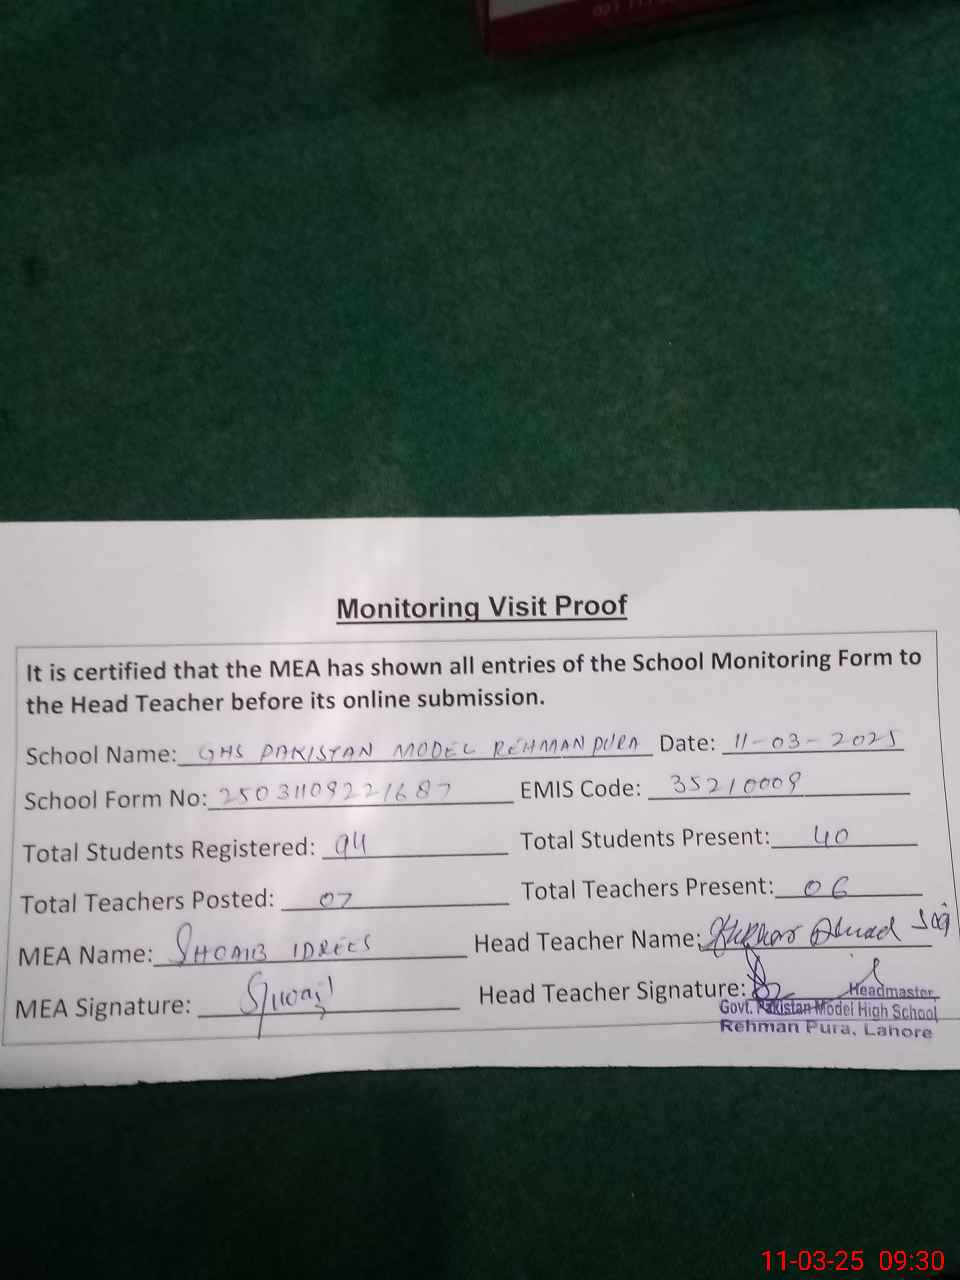 Monitoring Visit Proof
It is certified that the MEA has shown all entries of the School Monitoring Form to
the Head Teacher before its online submission.
School Name: GHS PAKISTAN MODEL REHMAN PURA Date: 11-03-2025
School Form No: 25031109221687 EMIS Code: 35210009
Total Students Registered: 94 Total Students Present: 40
Total Teachers Posted: 07 Total Teachers Present: 06
MEA Name: SHOAIB IDREES Head Teacher Name: Ahmad
MEA Signature: Shoaib Head Teacher Signature:
Headmaster,
Govt. Pakistan Model High School
Rehman Pura, Lahore
11-03-25 09:30